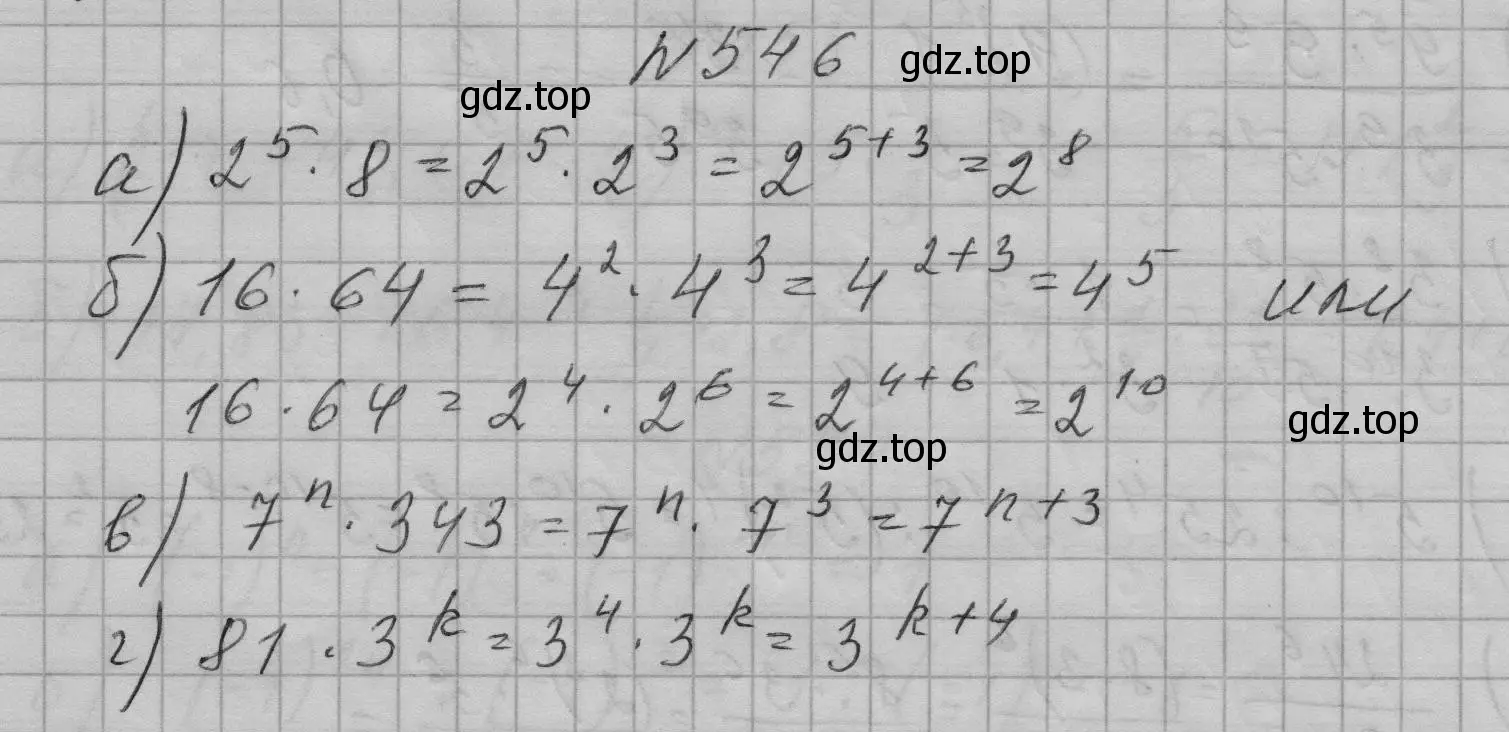 N 546 gdz.top
gdz.top
а) 2^5 · 8 = 2^5 · 2^3 = 2^{5+3} = 2^8
б) 16 · 64 = 4^2 · 4^3 = 4^{2+3} = 4^5 или
16 · 64 = 2^4 · 2^6 = 2^{4+6} = 2^{10}
gdz.top
gdz.top
в) 7^n · 343 = 7^n · 7^3 = 7^{n+3}
г) 81 · 3^k = 3^4 · 3^k = 3^{k+4}